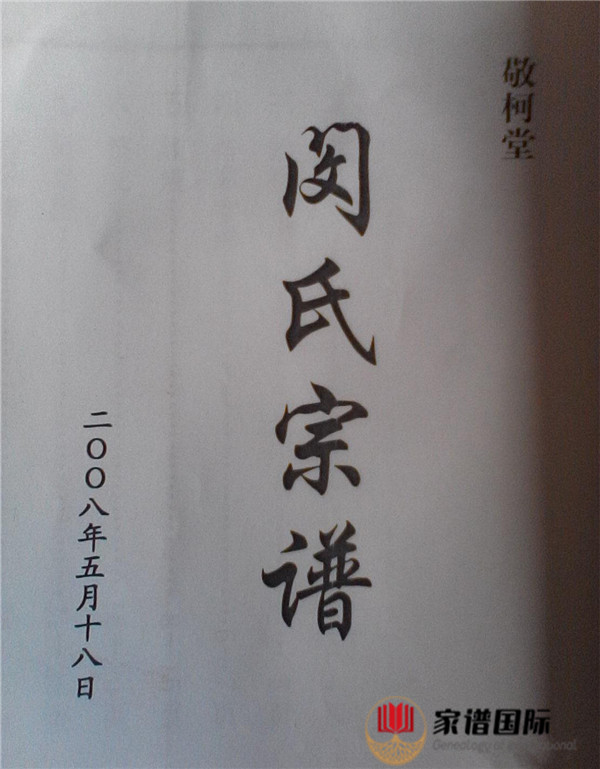 敬柯堂
闵氏宗谱
二〇〇八年五月十八日
家谱国际
Genealogy of international